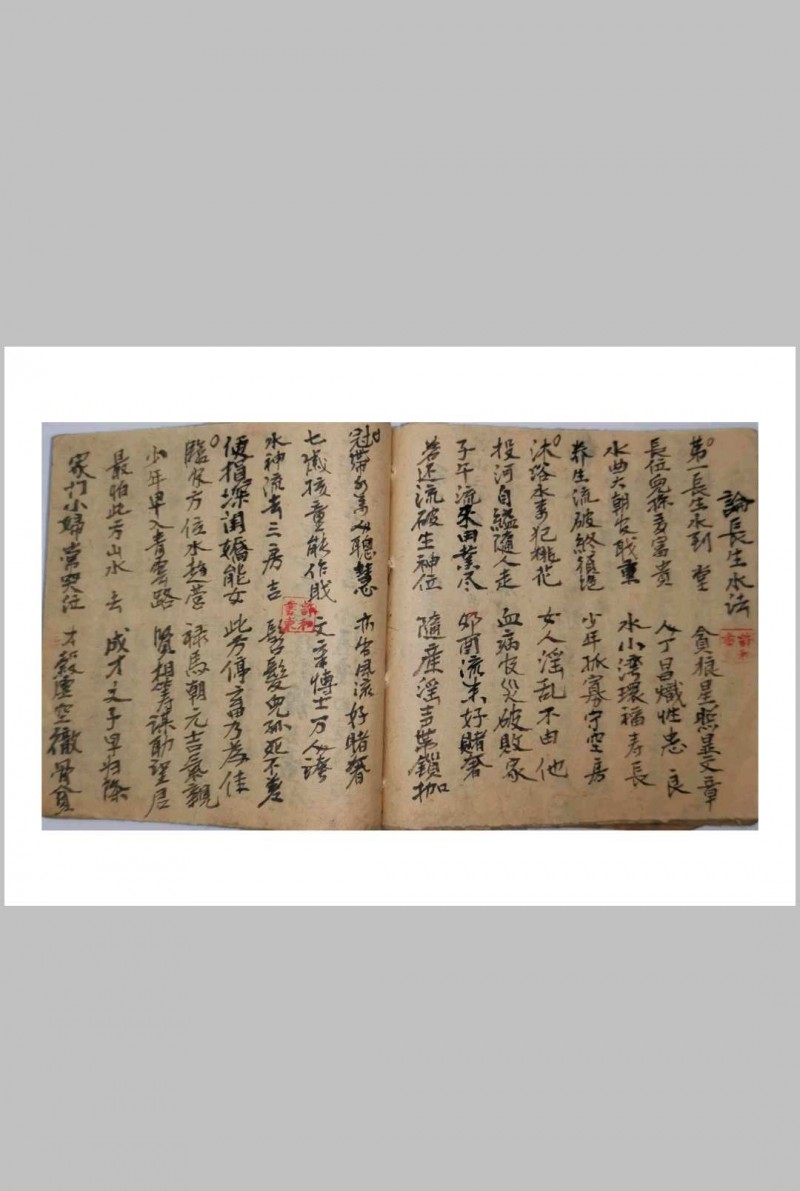 論長生水法
第一長生水到堂 貪狼星照显文章
長位兒孫多富貴 人丁昌熾性忠良
水曲大朝官职重 水小湾環福寿長
养生流破終須絕 少年孤寡守空房
沐浴水來犯桃花 女人淫乱不由他
投河自縊隨人走 血病官災破敗家
子午流來田業尽 卯酉流來好賭奢
若还流破生神位 隨產淫声帶鎖枷
冠帶水來人聰慧 亦主風流好賭奢
七歲孩童能作 文章博士万人誇
水神流去三房吉 髫髮兒孤死不差
便損深闺嬌能女 此方停蓄乃為佳
臨官方位水 禄馬朝元吉氣親
少年早入青雲路 賢相 助聖君
最怕此方山水去 成才之子早归
家门小婦常哭泣 才穀虛空徹骨貧